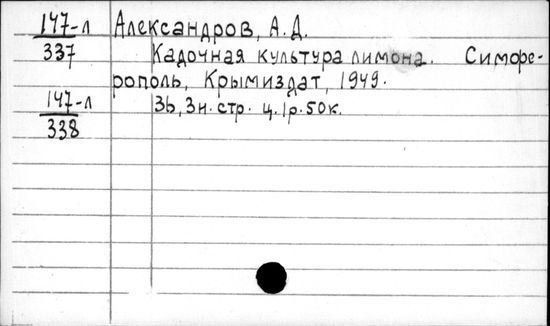 147-л Александров, А.Д.
337 Кадочная культура лимона. Симфе-
рополь, Крымиздат, 1949.
147-л 36, 3н. стр. ц. 1р. 50к.
338